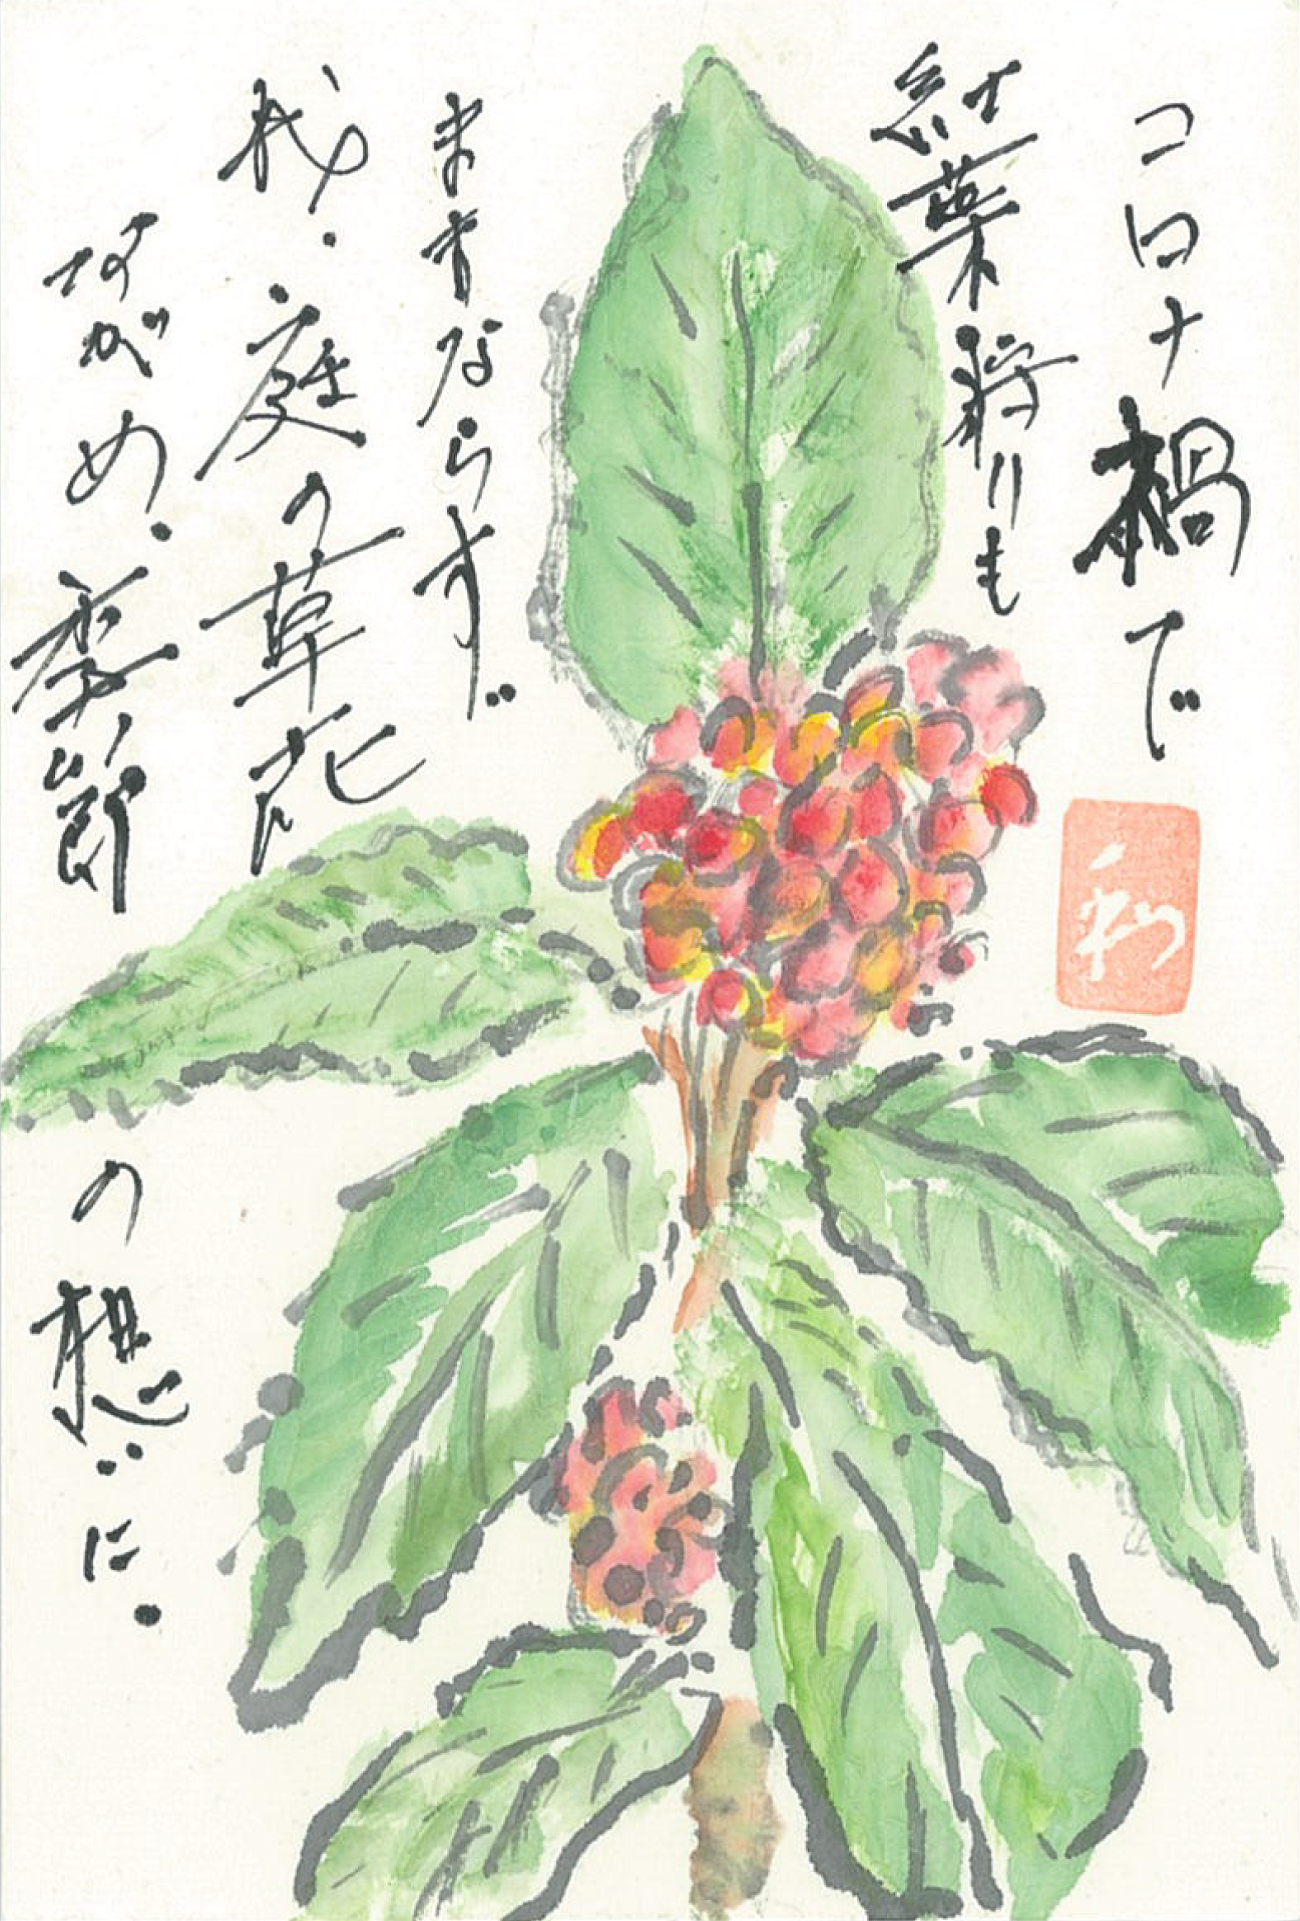 コロナ禍で
紅葉狩りも
ままならず
我・庭の草花
ながめ・季節の想いに・